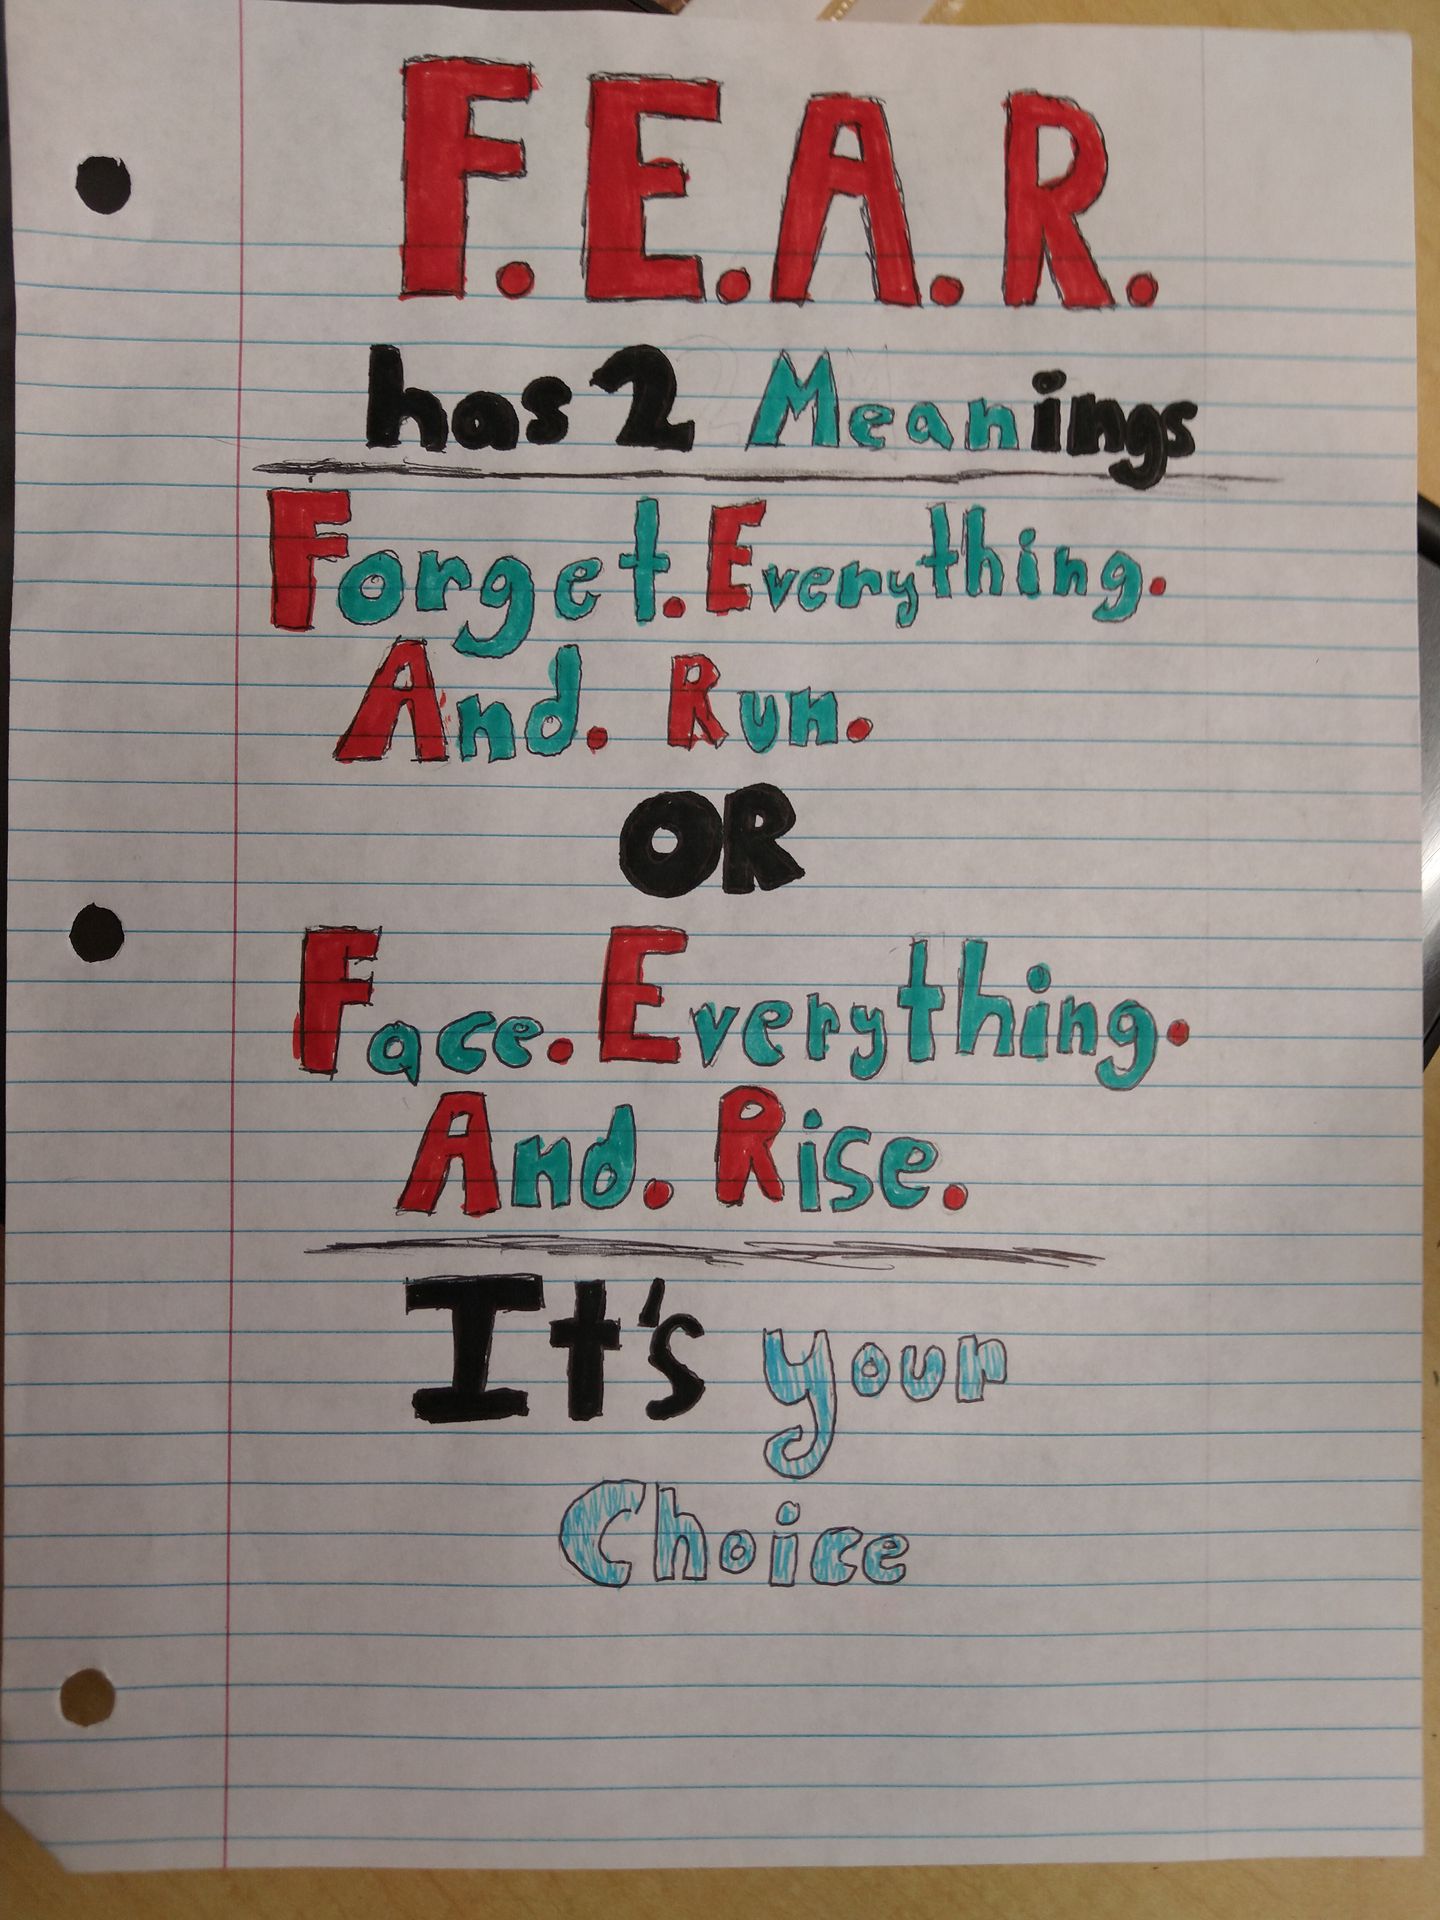 F.E.A.R.
has 2 Meanings
Forget. Everything.
And. Run.
OR
Face. Everything.
And. Rise.
It's your
Choice